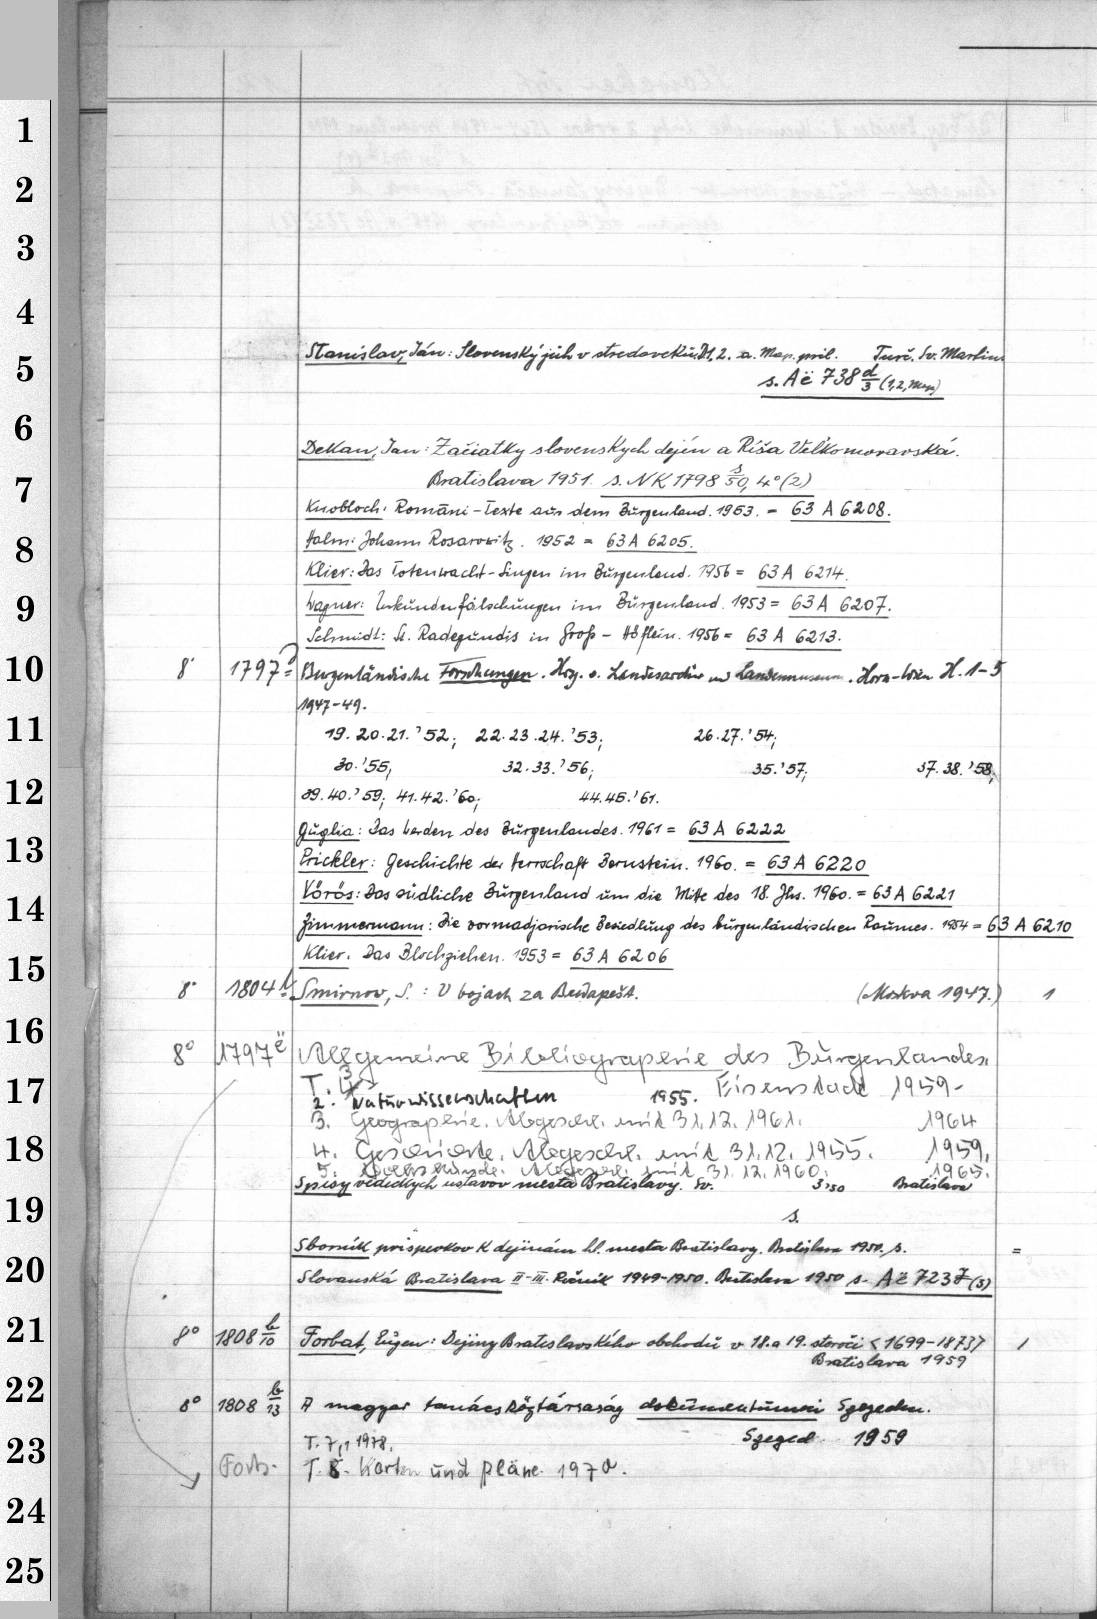 1
2
3
4
5
Stanislav, Ján: Slovenský juh v stredoveku. D1. 2. a. Map. pril. Turč. Sv. Martin
s. Aë 738 d/3 (1,2, Map)
6
Dekan, Jan: Začiatky slovenských dejín a Ríša Veľkomoravská.
7
Bratislava 1951. s. NK 1798 s/50, 4° (2)
Knobloch: Romāni-Texte aus dem Burgenland. 1953. = 63 A 6208.
8
Halm: Johann Rosarowitz. 1952 = 63 A 6205.
Klier: Das Totenwacht-Singen im Burgenland. 1956 = 63 A 6214.
9
Wagner: Urkundenfälschungen im Burgenland. 1953 = 63 A 6207.
Schmidt: St. Radegundis in Groß-Höflein. 1956 = 63 A 6213.
10
8° 1797 Burgenländische Forschungen. Hrg. v. Landesarchiv und Landesmuseum. Horn-Wien H. 1-5
1947-49.
11
19. 20. 21. '52; 22. 23. 24. '53; 26. 27. '54;
30. '55; 32. 33. '56; 35. '57; 37. 38. '58;
12
39. 40. '59; 41. 42. '60; 44. 45. '61.
Guglia: Das Werden des Burgenlandes. 1961 = 63 A 6222
13
Prickler: Geschichte der Herrschaft Bernstein. 1960. = 63 A 6220
Vörös: Das südliche Burgenland um die Mitte des 18. Jhs. 1960. = 63 A 6221
14
Zimmermann: Die vormadjarische Besiedlung des burgenländischen Raumes. 1954 = 63 A 6210
Klier: Das Blochziehen. 1953 = 63 A 6206
15
8° 1804 Smirnov, S.: V bojach za Budapešt. (Moskva 1947.) 1
16
8° 1797 ë Allgemeine Bibliographie des Burgenlandes.
17
T. Eisenstadt 1959-
2. Naturwissenschaften 1955.
3. Geographie. Abgeschl. mit 31.12.1961. 1964
18
4. Geschichte. Abgeschl. mit 31.12.1955. 1959.
5. Volkskunde. Abgeschl. mit 31.12.1960. 1965.
Spisy vedeckých ustavov mesta Bratislavy. Sv. 3, 50 Bratislava
19
s.
Sborník príspevkov k dejinám hl. mesta Bratislavy. Bratislava 1950. s. =
20
Slovanská Bratislava II-III. Ročník 1949-1950. Bratislava 1950 s. Aë 7237 (3)
21
8° 1808 b/10 Forbat, Eugen: Dejiny Bratislavského obchodu v 18. a 19. storočí <1699-1873> 1
Bratislava 1959
22
8° 1808 b/13 A magyar tanácsköztársaság dokumentumai Szegeden.
Szeged 1959
23
T. 7,1 1978.
Forts. T. 8. Karten und Pläne. 1970.
24
25